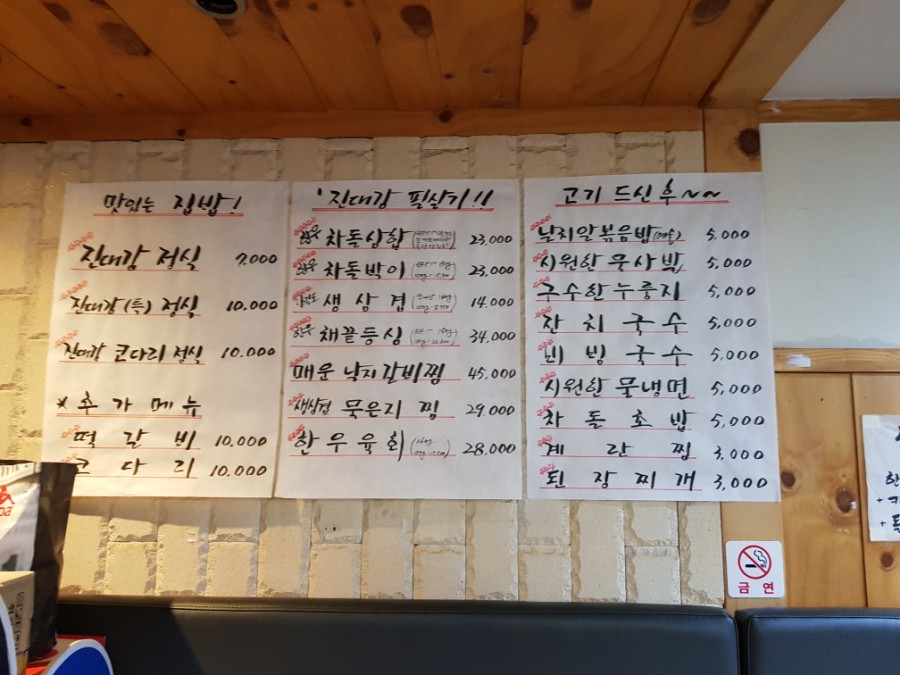 맛있는 집밥!
진대감 정식 7,000
진대감(특) 정식 10,000
진대감 코다리 정식 10,000
* 추가메뉴
떡갈비 10,000
코다리 10,000
진대감 필살기!!
한우 차돌삼합 23,000
한우 차돌박이 23,000
생삼겹 14,000
한우 채끝등심 34,000
매운 낙지갈비찜 45,000
생삼겹 묵은지찜 29,000
한우육회 28,000
고기 드신 후~~
날치알볶음밥 5,000
시원한 묵사발 5,000
구수한 누룽지 5,000
잔치국수 5,000
비빔국수 5,000
시원한 물냉면 5,000
차돌초밥 5,000
계란찜 3,000
된장찌개 3,000
금연